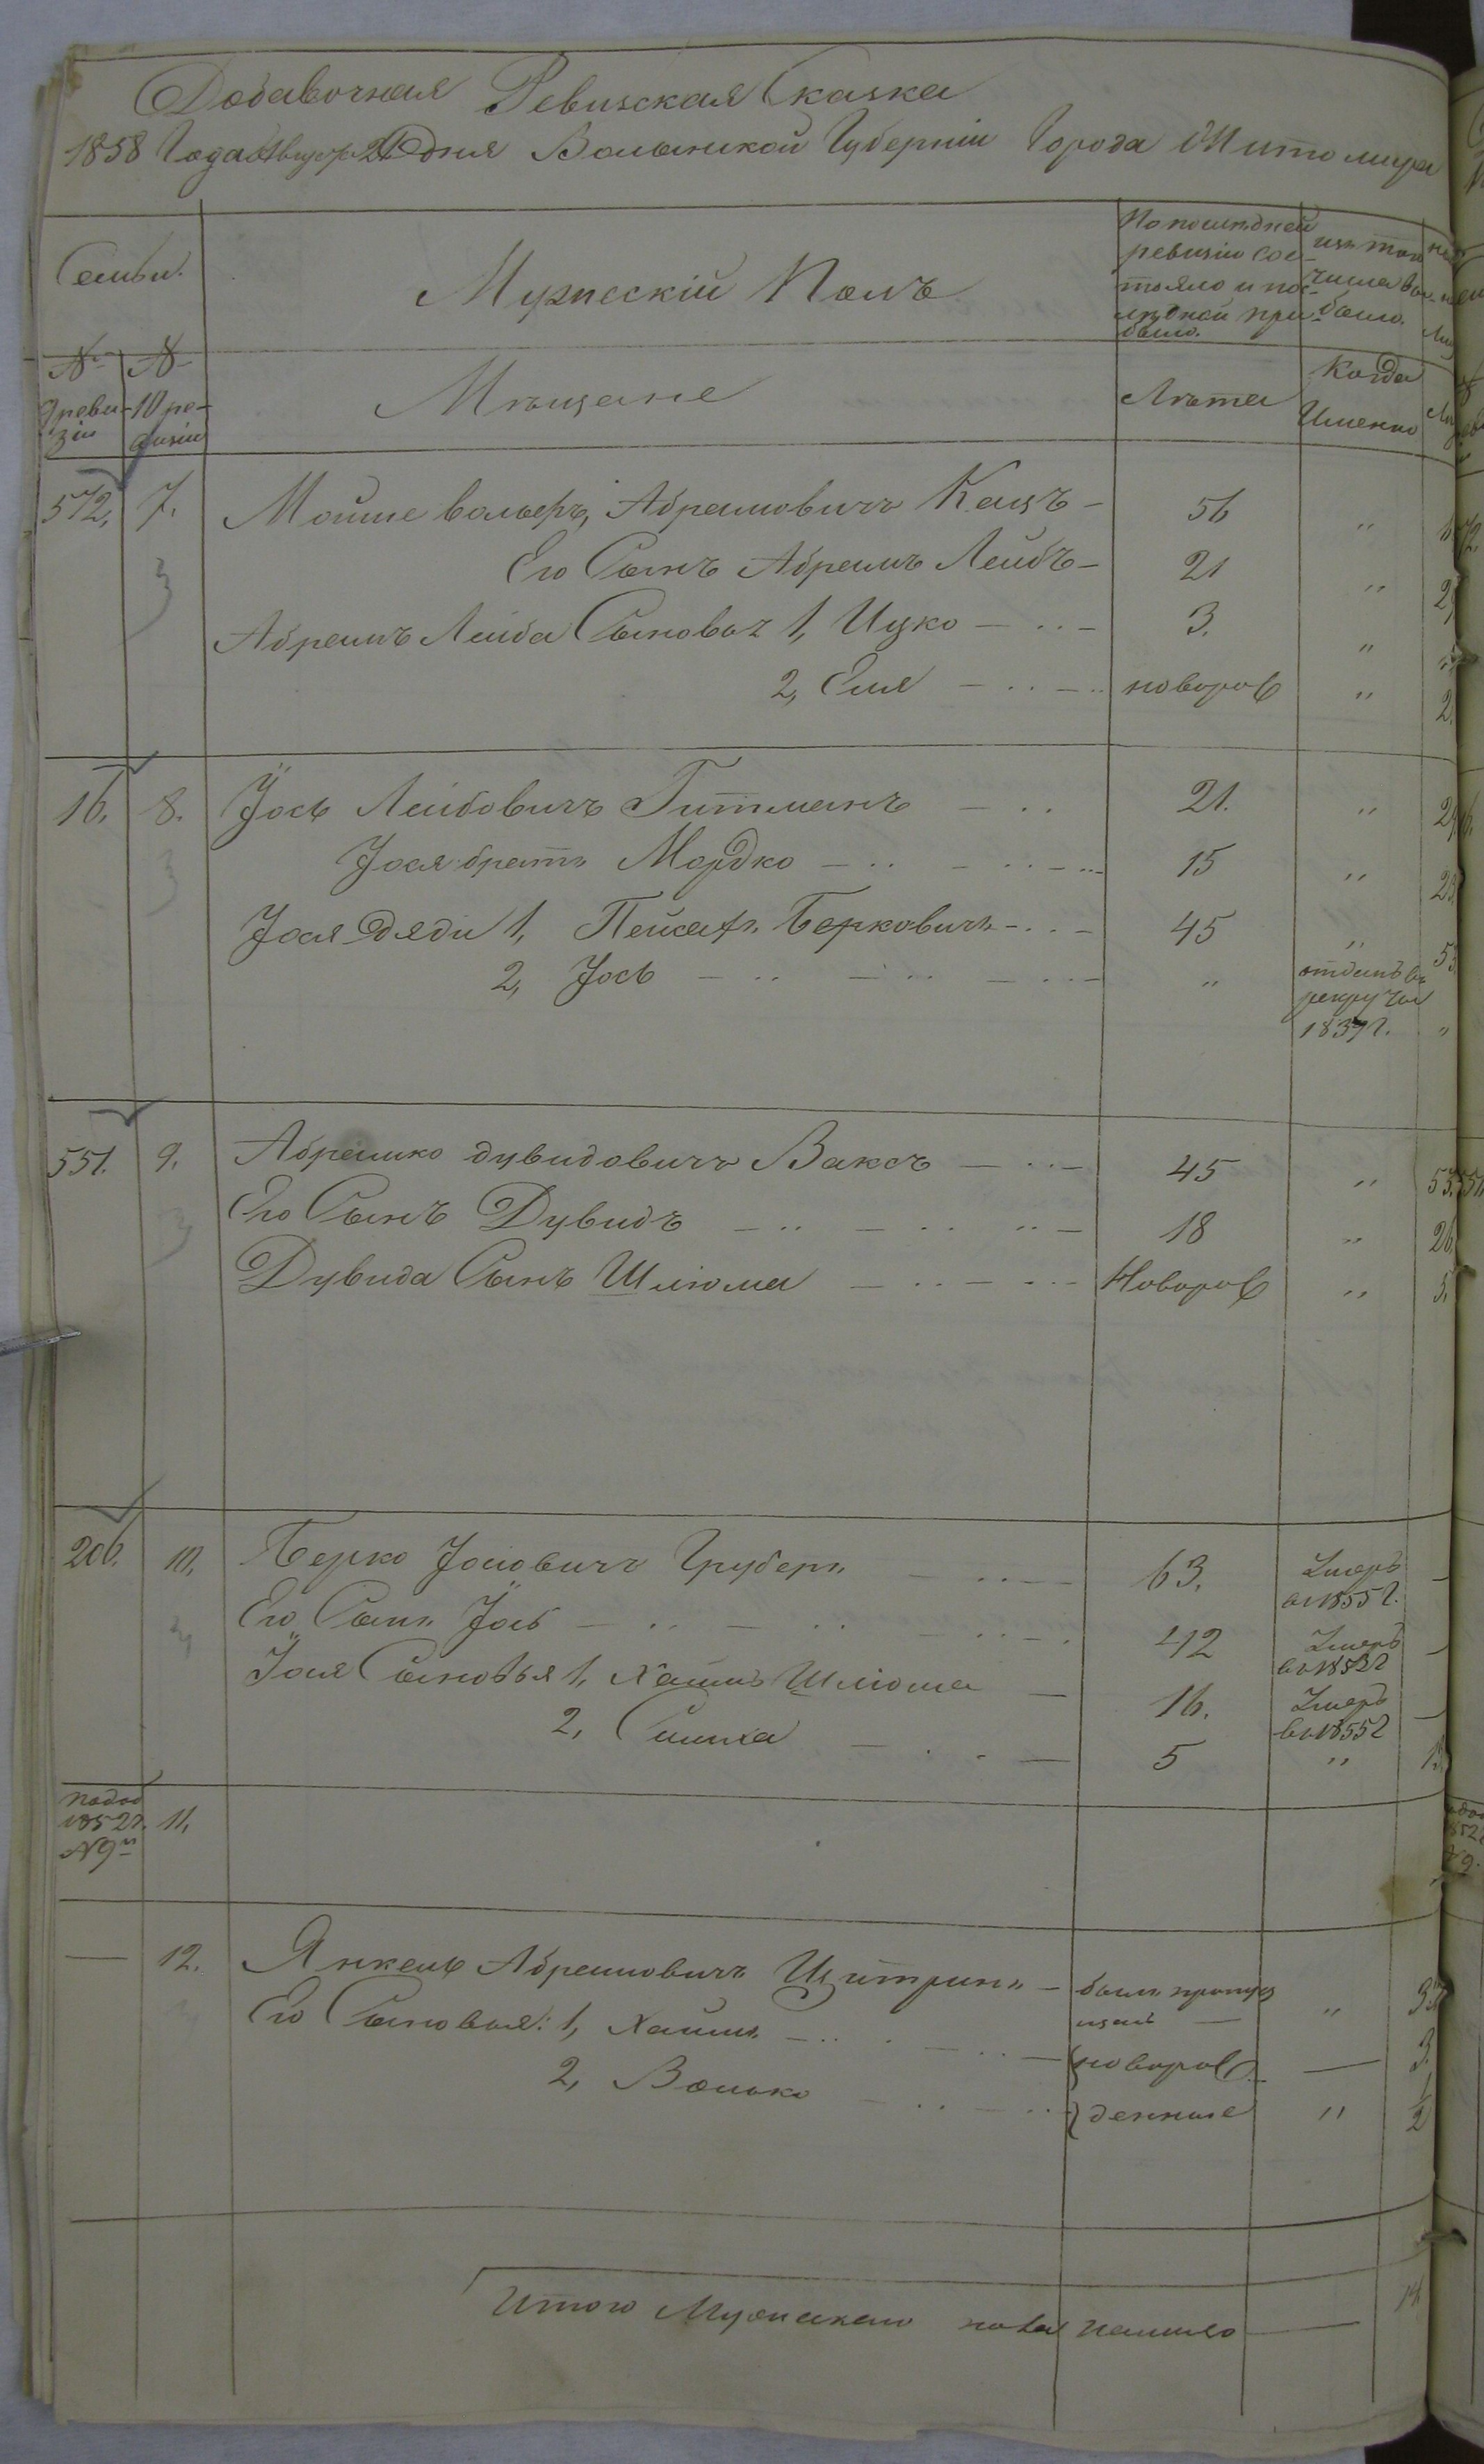 Добавочная Ревизская Сказка
1858 Года Августа 21 дня Волынской Губерніи Города Житомира
Семьи.
Мужескій Полъ
По послѣдней ревизіи состояло и послѣдней прибыло.
изъ того числа выбыло.
№ 9 ревизіи
№ 10 ревизіи
Мѣщане
Лѣта
Когда Именно
572, 7. Мойше вольфъ, Абрамовичъ Кацъ - 56 „
Его Сынъ Абрамъ Лейбъ - 21 „ 2
Абрамъ Лейба Сыновья 1, Ицко - 3. „
2, Еля - новорож „ 2.
16. 8. Іось Лейбовичъ Гитманъ - 21. „ 29
Іося братъ Мордко - 15 „ 23
Іося дяди 1, Пейсахъ Берковичъ - 45 „ 53
2, Іось - „ отданъ въ рекруты 1837 г. „
551. 9. Абрамко дувидовичъ Ваксъ - 45 „ 53.
Его Сынъ Дувидъ - 18 „ 26.
Дувида Сынъ Шліома - Новорож „ 5.
206. 10. Берко Іосіовичъ Груберъ - 63. Умеръ въ 1855 г. -
Его Сынъ Іось - 42 Умеръ въ 1852 г -
Іося Сыновья 1, Хаимъ Шліома - 16. Умеръ въ 1855 г -
2, Симха - 5 „ 13.
по доп 1852 г. № 9й 11.
— 12. Янкель Абрамовичъ Цитринъ - былъ пропущенъ — „ 35
Его Сыновья: 1, Хаимъ - новорож — 3.
2, Волько - денные „ 1/2
Итого Мужескаго пола налицо —